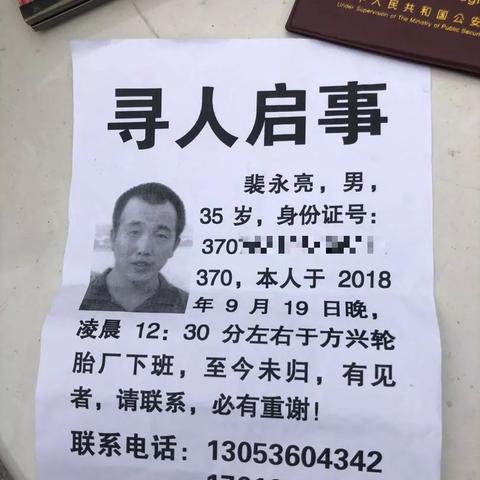 人民共和国公安
Under Supervision of The Ministry of Public Secur
寻人启事
裴永亮，男，
35岁，身份证号：
370
370，本人于 2018
年 9 月 19 日晚，
凌晨 12：30 分左右于方兴轮
胎厂下班，至今未归，有见
者，请联系，必有重谢！
联系电话：13053604342